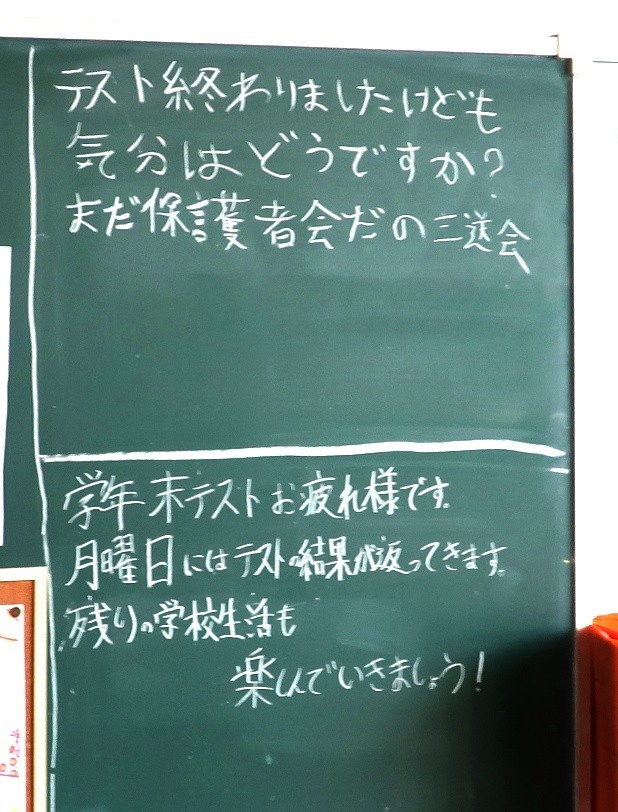 テスト終わりましたけども
気分はどうですか?
まだ保護者会だの三送会
学年末テストお疲れ様です。
月曜日にはテストの結果が返ってきます。
残りの学校生活も
楽しんでいきましょう!